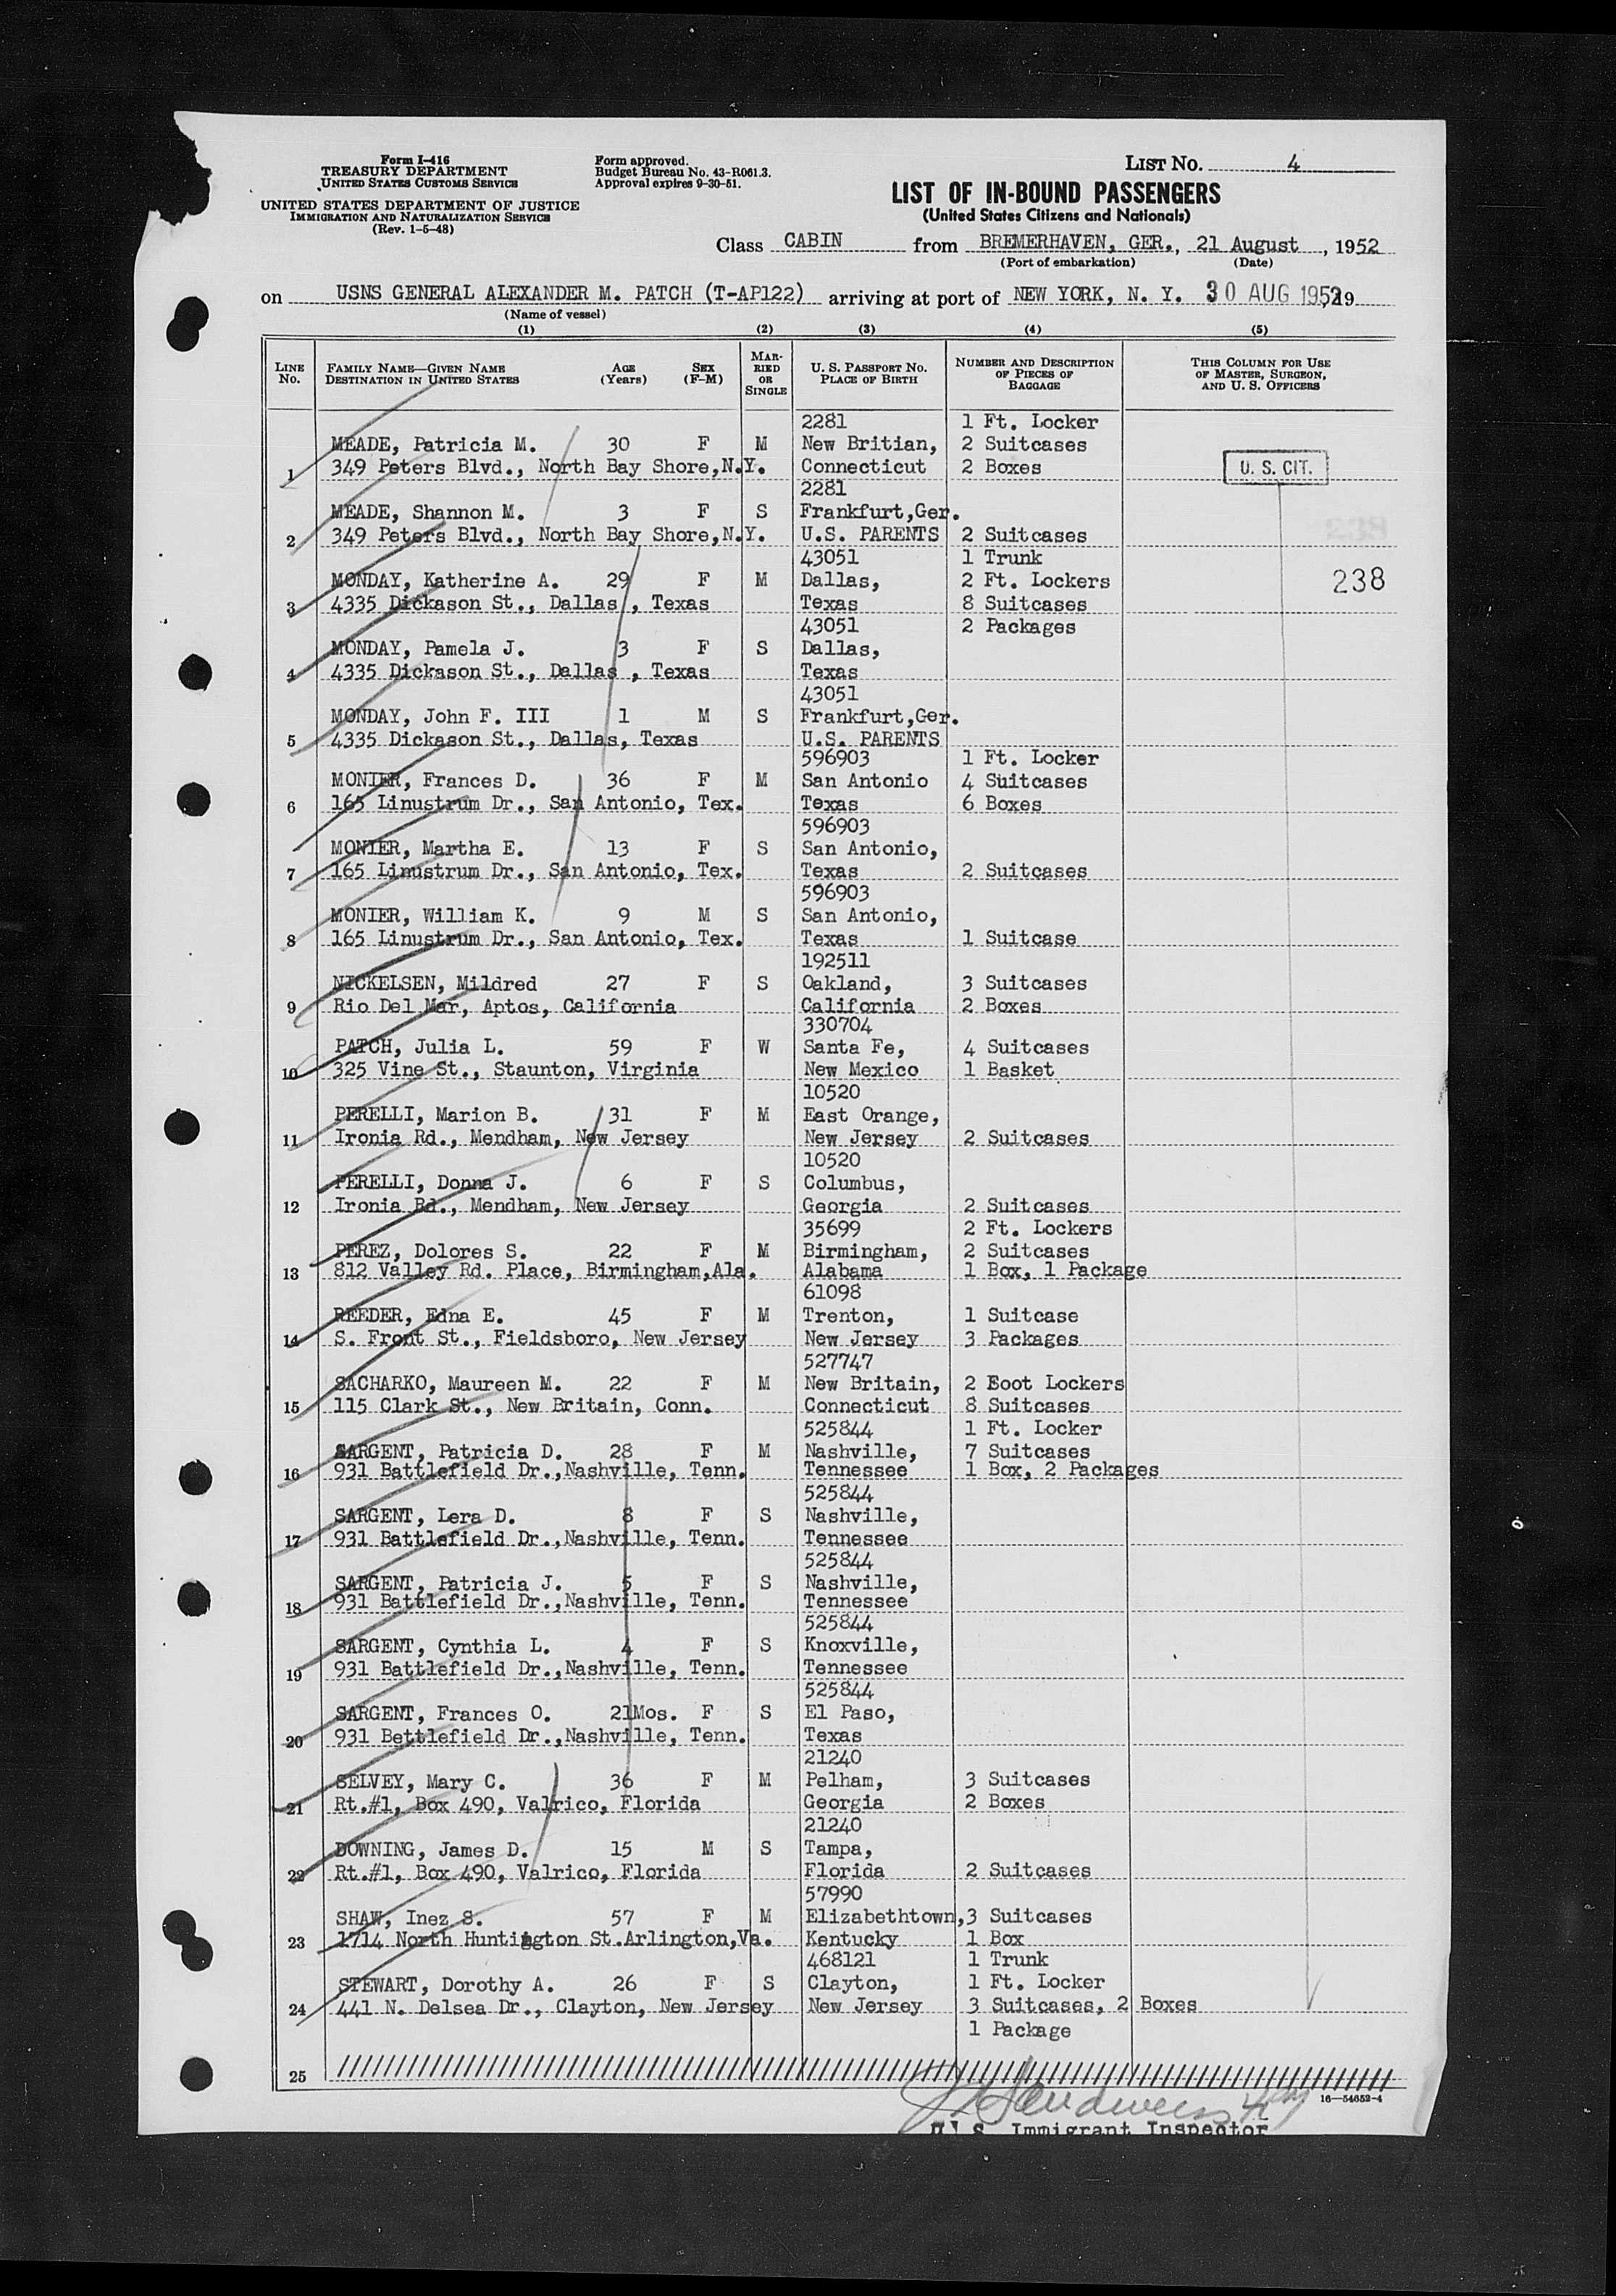 Form I-416
TREASURY DEPARTMENT
UNITED STATES CUSTOMS SERVICE
UNITED STATES DEPARTMENT OF JUSTICE
IMMIGRATION AND NATURALIZATION SERVICE
(Rev. 1-5-48)
Form approved.
Budget Bureau No. 43-R061.3.
Approval expires 9-30-51.
LIST NO. 4
LIST OF IN-BOUND PASSENGERS
(United States Citizens and Nationals)
Class CABIN from BREMERHAVEN, GER., 21 August, 1952
(Port of embarkation) (Date)
on USNS GENERAL ALEXANDER M. PATCH (T-AP122) arriving at port of NEW YORK, N. Y. 30 AUG 1952, 19
(Name of vessel)
(1) (2) (3) (4) (5)
LINE NO.
FAMILY NAME—GIVEN NAME
DESTINATION IN UNITED STATES
AGE
(Years)
SEX
(F-M)
MAR-
RIED
OR
SINGLE
U. S. PASSPORT NO.
PLACE OF BIRTH
NUMBER AND DESCRIPTION
OF PIECES OF
BAGGAGE
THIS COLUMN FOR USE
OF MASTER, SURGEON,
AND U. S. OFFICERS
2281 1 Ft. Locker
MEADE, Patricia M. 30 F M New Britian, 2 Suitcases
1 349 Peters Blvd., North Bay Shore,N.Y. Connecticut 2 Boxes U. S. CIT.
2281
MEADE, Shannon M. 3 F S Frankfurt,Ger.
2 349 Peters Blvd., North Bay Shore,N.Y. U.S. PARENTS 2 Suitcases
43051 1 Trunk
MONDAY, Katherine A. 29 F M Dallas, 2 Ft. Lockers 238
3 4335 Dickason St., Dallas , Texas Texas 8 Suitcases
43051 2 Packages
MONDAY, Pamela J. 3 F S Dallas,
4 4335 Dickason St., Dallas , Texas Texas
43051
MONDAY, John F. III 1 M S Frankfurt,Ger.
5 4335 Dickason St., Dallas, Texas U.S. PARENTS
596903 1 Ft. Locker
MONIER, Frances D. 36 F M San Antonio 4 Suitcases
6 165 Linustrum Dr., San Antonio, Tex. Texas 6 Boxes
596903
MONIER, Martha E. 13 F S San Antonio,
7 165 Linustrum Dr., San Antonio, Tex. Texas 2 Suitcases
596903
MONIER, William K. 9 M S San Antonio,
8 165 Linustrum Dr., San Antonio, Tex. Texas 1 Suitcase
192511
NICKELSEN, Mildred 27 F S Oakland, 3 Suitcases
9 Rio Del Mar, Aptos, California California 2 Boxes
330704
PATCH, Julia L. 59 F W Santa Fe, 4 Suitcases
10 325 Vine St., Staunton, Virginia New Mexico 1 Basket
10520
PERELLI, Marion B. 31 F M East Orange,
11 Ironia Rd., Mendham, New Jersey New Jersey 2 Suitcases
10520
PERELLI, Donna J. 6 F S Columbus,
12 Ironia Rd., Mendham, New Jersey Georgia 2 Suitcases
35699 2 Ft. Lockers
PEREZ, Dolores S. 22 F M Birmingham, 2 Suitcases
13 812 Valley Rd. Place, Birmingham,Ala. Alabama 1 Box, 1 Package
61098
REEDER, Edna E. 45 F M Trenton, 1 Suitcase
14 S. Front St., Fieldsboro, New Jersey New Jersey 3 Packages
527747
SACHARKO, Maureen M. 22 F M New Britain, 2 Foot Lockers
15 115 Clark St., New Britain, Conn. Connecticut 8 Suitcases
525844 1 Ft. Locker
SARGENT, Patricia D. 28 F M Nashville, 7 Suitcases
16 931 Battlefield Dr.,Nashville, Tenn. Tennessee 1 Box, 2 Packages
525844
SARGENT, Lera D. 8 F S Nashville,
17 931 Battlefield Dr.,Nashville, Tenn. Tennessee
525844
SARGENT, Patricia J. 5 F S Nashville,
18 931 Battlefield Dr.,Nashville, Tenn. Tennessee
525844
SARGENT, Cynthia L. 4 F S Knoxville,
19 931 Battlefield Dr.,Nashville, Tenn. Tennessee
525844
SARGENT, Frances O. 21Mos. F S El Paso,
20 931 Bettlefield Dr.,Nashville, Tenn. Texas
21240
SELVEY, Mary C. 36 F M Pelham, 3 Suitcases
21 Rt.#1, Box 490, Valrico, Florida Georgia 2 Boxes
21240
DOWNING, James D. 15 M S Tampa,
22 Rt.#1, Box 490, Valrico, Florida Florida 2 Suitcases
57990
SHAW, Inez S. 57 F M Elizabethtown, 3 Suitcases
23 1714 North Huntington St.Arlington,Va. Kentucky 1 Box
468121 1 Trunk
STEWART, Dorothy A. 26 F S Clayton, 1 Ft. Locker
24 441 N. Delsea Dr., Clayton, New Jersey New Jersey 3 Suitcases, 2 Boxes
1 Package
25
16—54652-4
U. S. Immigrant Inspector